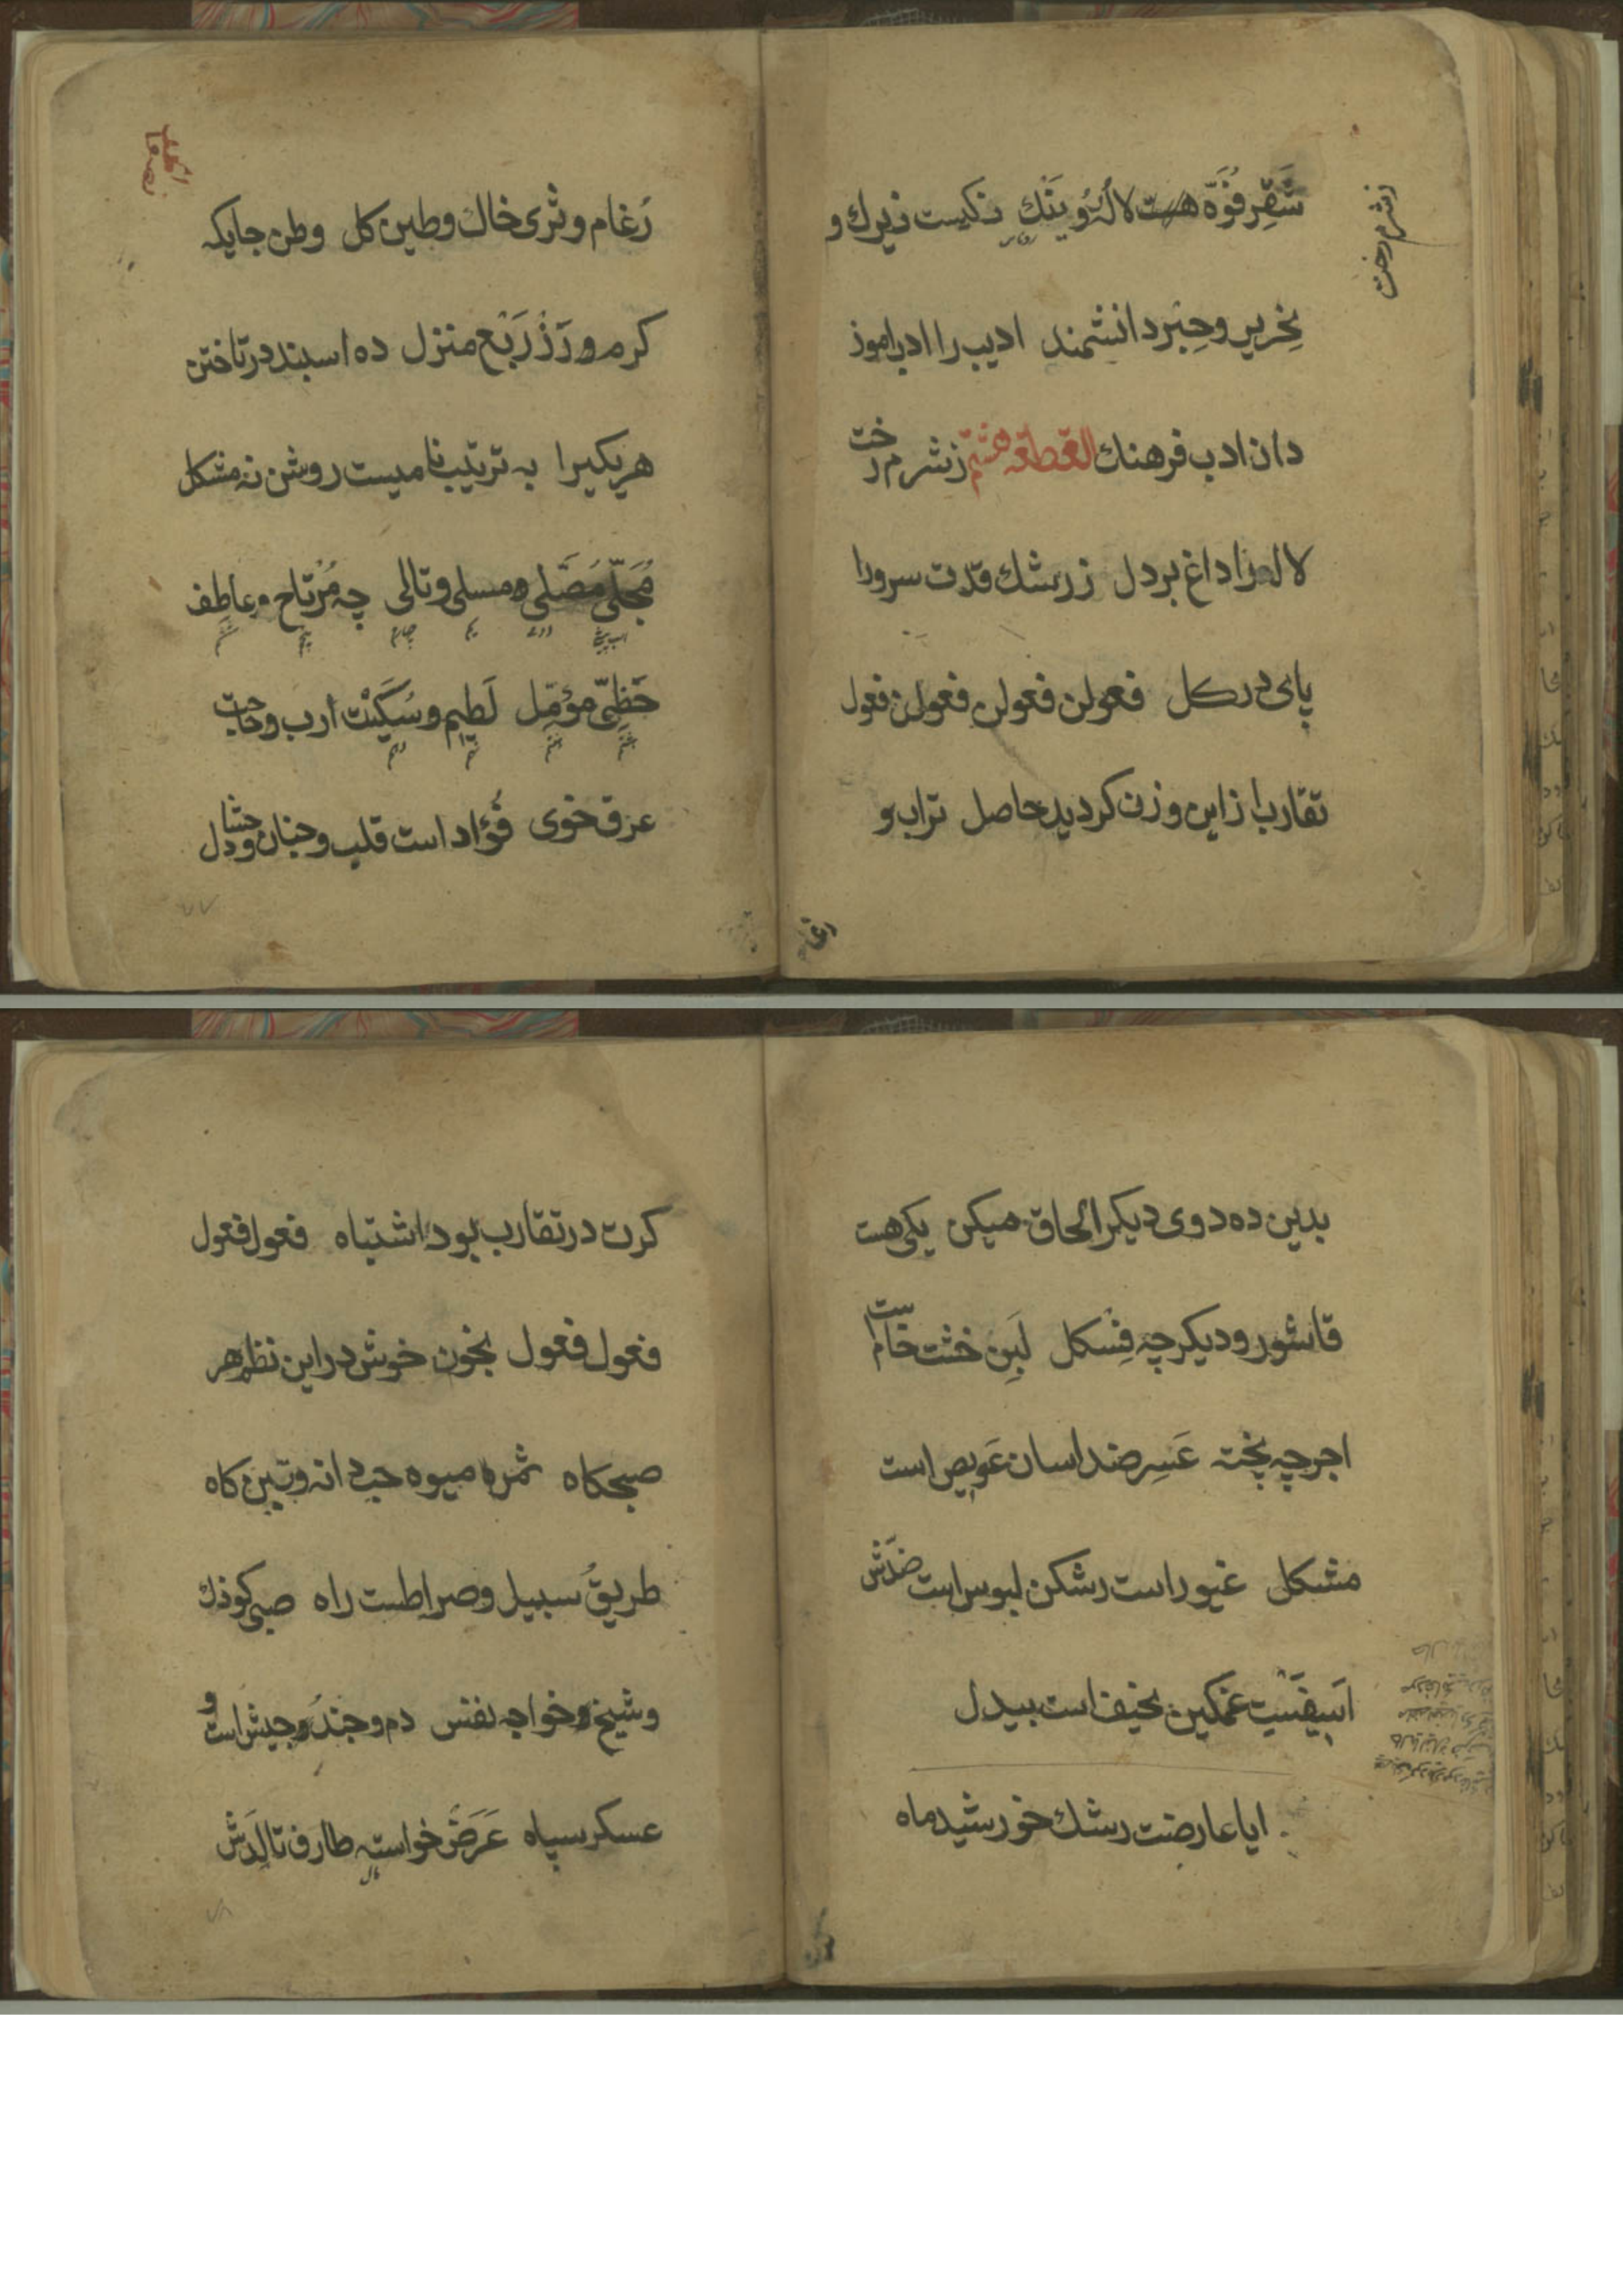 شَقِر فُوَّه هست لاله و ینك نکیست زیرك و
نحریر و حِبْر دانشمند ادیب را ادب اموز
دان ادب فرهنك القطعة هشتم زشرم رخت
زشرم رخت
لاله را داغ بر دل ز رشك قدت سرو را
پای در کل فعولن فعولن فعولن فعول
تقارب از این وزن کردید حاصل تراب و
رغام
رُغام و ثری خاك و طین کل وطن جایکه
کرم و رَز رَبْع منزل ده اسبند در تاختن
هر یکیرا به ترتیب نامیست روشن نه مشکل
مُجَلّی مُصَلّی و مسلی و تالی چه مُرْتاح و عاطِف
حَظِیّ مؤمّل لَطیم و سُکَیْت ارب و حاجت
عرق خوی فُؤاد است قلب و جنان و حشا و دل
بدین ده دوی دیکر الحاق میکن یکی هست
قاشور و دیکر چه فِسْکل لَبِن خشت خامست
اجر چه پخته عَسِر ضد اسان عَویص است
مشکل غیور است رشکن لبوس است ضدّش
اَسیفَسْت غمکین نحیف است بیدل
ایا عارضت رشك خورشید ماه
کرت در تقارب بود اشتباه فعول فعول
فعول فعول بخون خوش در این نظم هر
صبحکاه ثمره میوه حب دانه و تبن کاه
طریق سبیل و صراطست راه صبی کوذك
و شیخ و خواجه نفس دم و جند و جیش است و
عسکر سپاه عَرَض خواسته طارف تالِدَش
مال